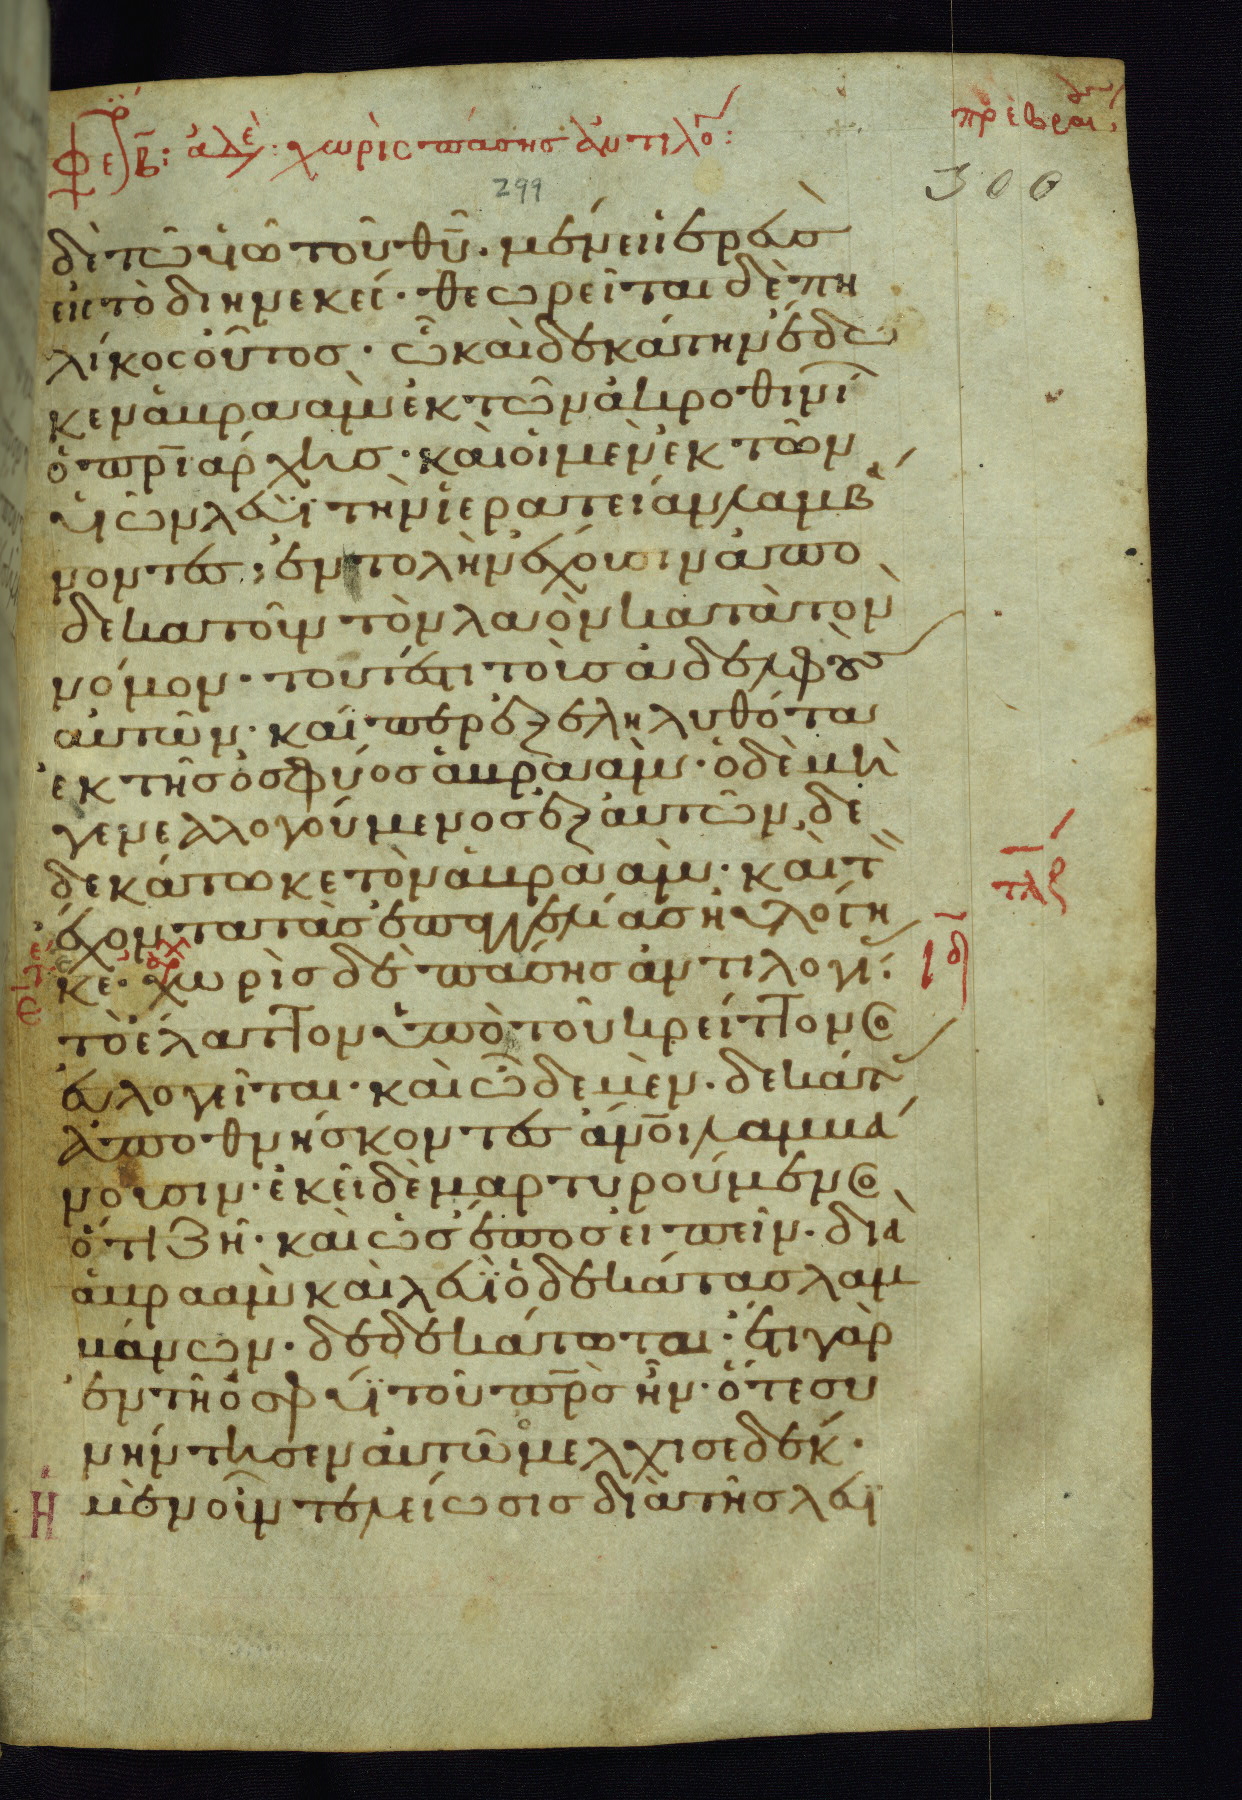 πρ εβραι
φεβ β: αδε: χωρὶς πάσης ἀντιλο:
299
300
δὲ τῶ υἱῶ τοῦ θῦ. μένει ἱερεὺσ
εἰς τὸ διηνεκεί. θεωρεῖται δὲ πη
λίκος οὗτοσ. ὧ καὶ δεκάτην ἔδω
κεν ἀβραὰμ ἐκ τῶν ἀκροθινί
ὁ πρῖάρχησ. καὶ οἱ μὲν ἐκ τῶν
υἱῶν λευῒ τὴν ἱερατείαν λαμβά
νοντεσ; ἐντολὴν ἔχουσιν ἀπο
δεκατοῖν τὸν λαὸν κατὰ τὸν
νόμον. τουτέστι τοὺσ ἀδελφοὺσ
αὐτῶν. καίπερ ἐξεληλυθότασ
ἐκ τῆς ὀσφύοσ ἀβραάμ. ὁ δὲ μὴ
γενεαλογούμενοσ ἐξ αὐτῶν, δε
δεκάτωκε τὸν ἀβραάμ. καὶ τ
ἔχοντα τὰσ ἐπαγγελίασ ηὐλόγη
κε. χωρὶσ δὲ πάσησ ἀντιλογί:
τὸ ἔλαττον ὑπὸ τοῦ κρείττονος
εὐλογεῖται. καὶ ὧδε μὲν. δεκάτ
ἀποθνήσκοντεσ ἄνοι λαμβά
νουσιν. ἐκεῖ δὲ μαρτυρούμενος
ὅτι ζῆ. καὶ ὡσ ἔποσ εἰπεῖν. διὰ
ἀβραὰμ καὶ λευῒ ὁ δεκάτασ λαμ
βάνων. δεδεκάτωται. ἔτι γὰρ
ἐν τῆ ὀσφύϊ τοῦ πρ̅σ ἦν. ὅτε συ
νήντησεν αὐτῶ ὁ μελχισεδέκ.
Η μὲν οὖν τελείωσισ διὰ τῆσ λευϊ
τλ
ιδ